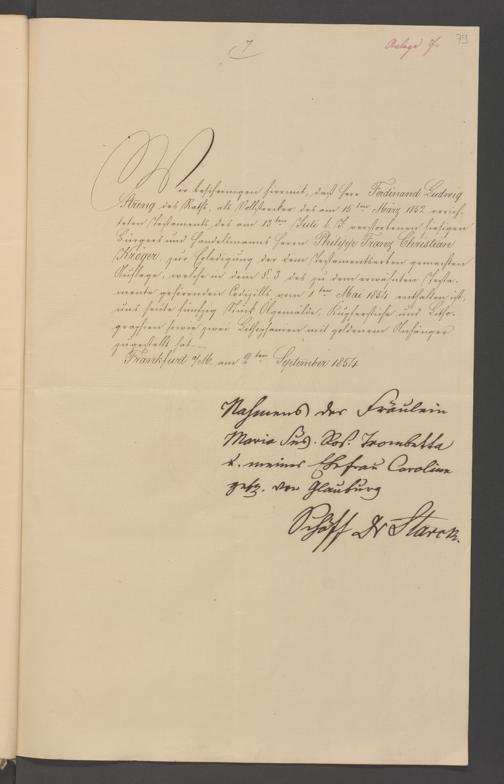 7
Anlage 7.
79
Wir bescheinigen hiermit, daß Herr Ferdinand Ludwig
Streng des Raths, als Vollstrecker des am 15ten März 1852 errich-
teten Testaments des am 13ten Juli l. J. verstorbenen hiesigen
Bürgers und Handelsmanns Herrn Philipp Franz Christian
Krieger, zur Erledigung der dem Testamentserben gemachten
Auflage, welche in dem §. 3 des zu dem erwähnten Testa-
mente gehörenden Codizills vom 1ten Mai 1854 enthalten ist,
uns heute fünfzig Stück Oelgemälde, Kupferstiche und Litho-
graphien sowie zwei mit goldenem Anhänger
zugestellt hat.
Frankfurt a/M. am 2ten September 1854
Nahmens der Fräulein
Maria Sus. Ros. Trombetta
u. meiner Ehefrau Caroline
geb. von Glauburg
Schöff Dr Starck.